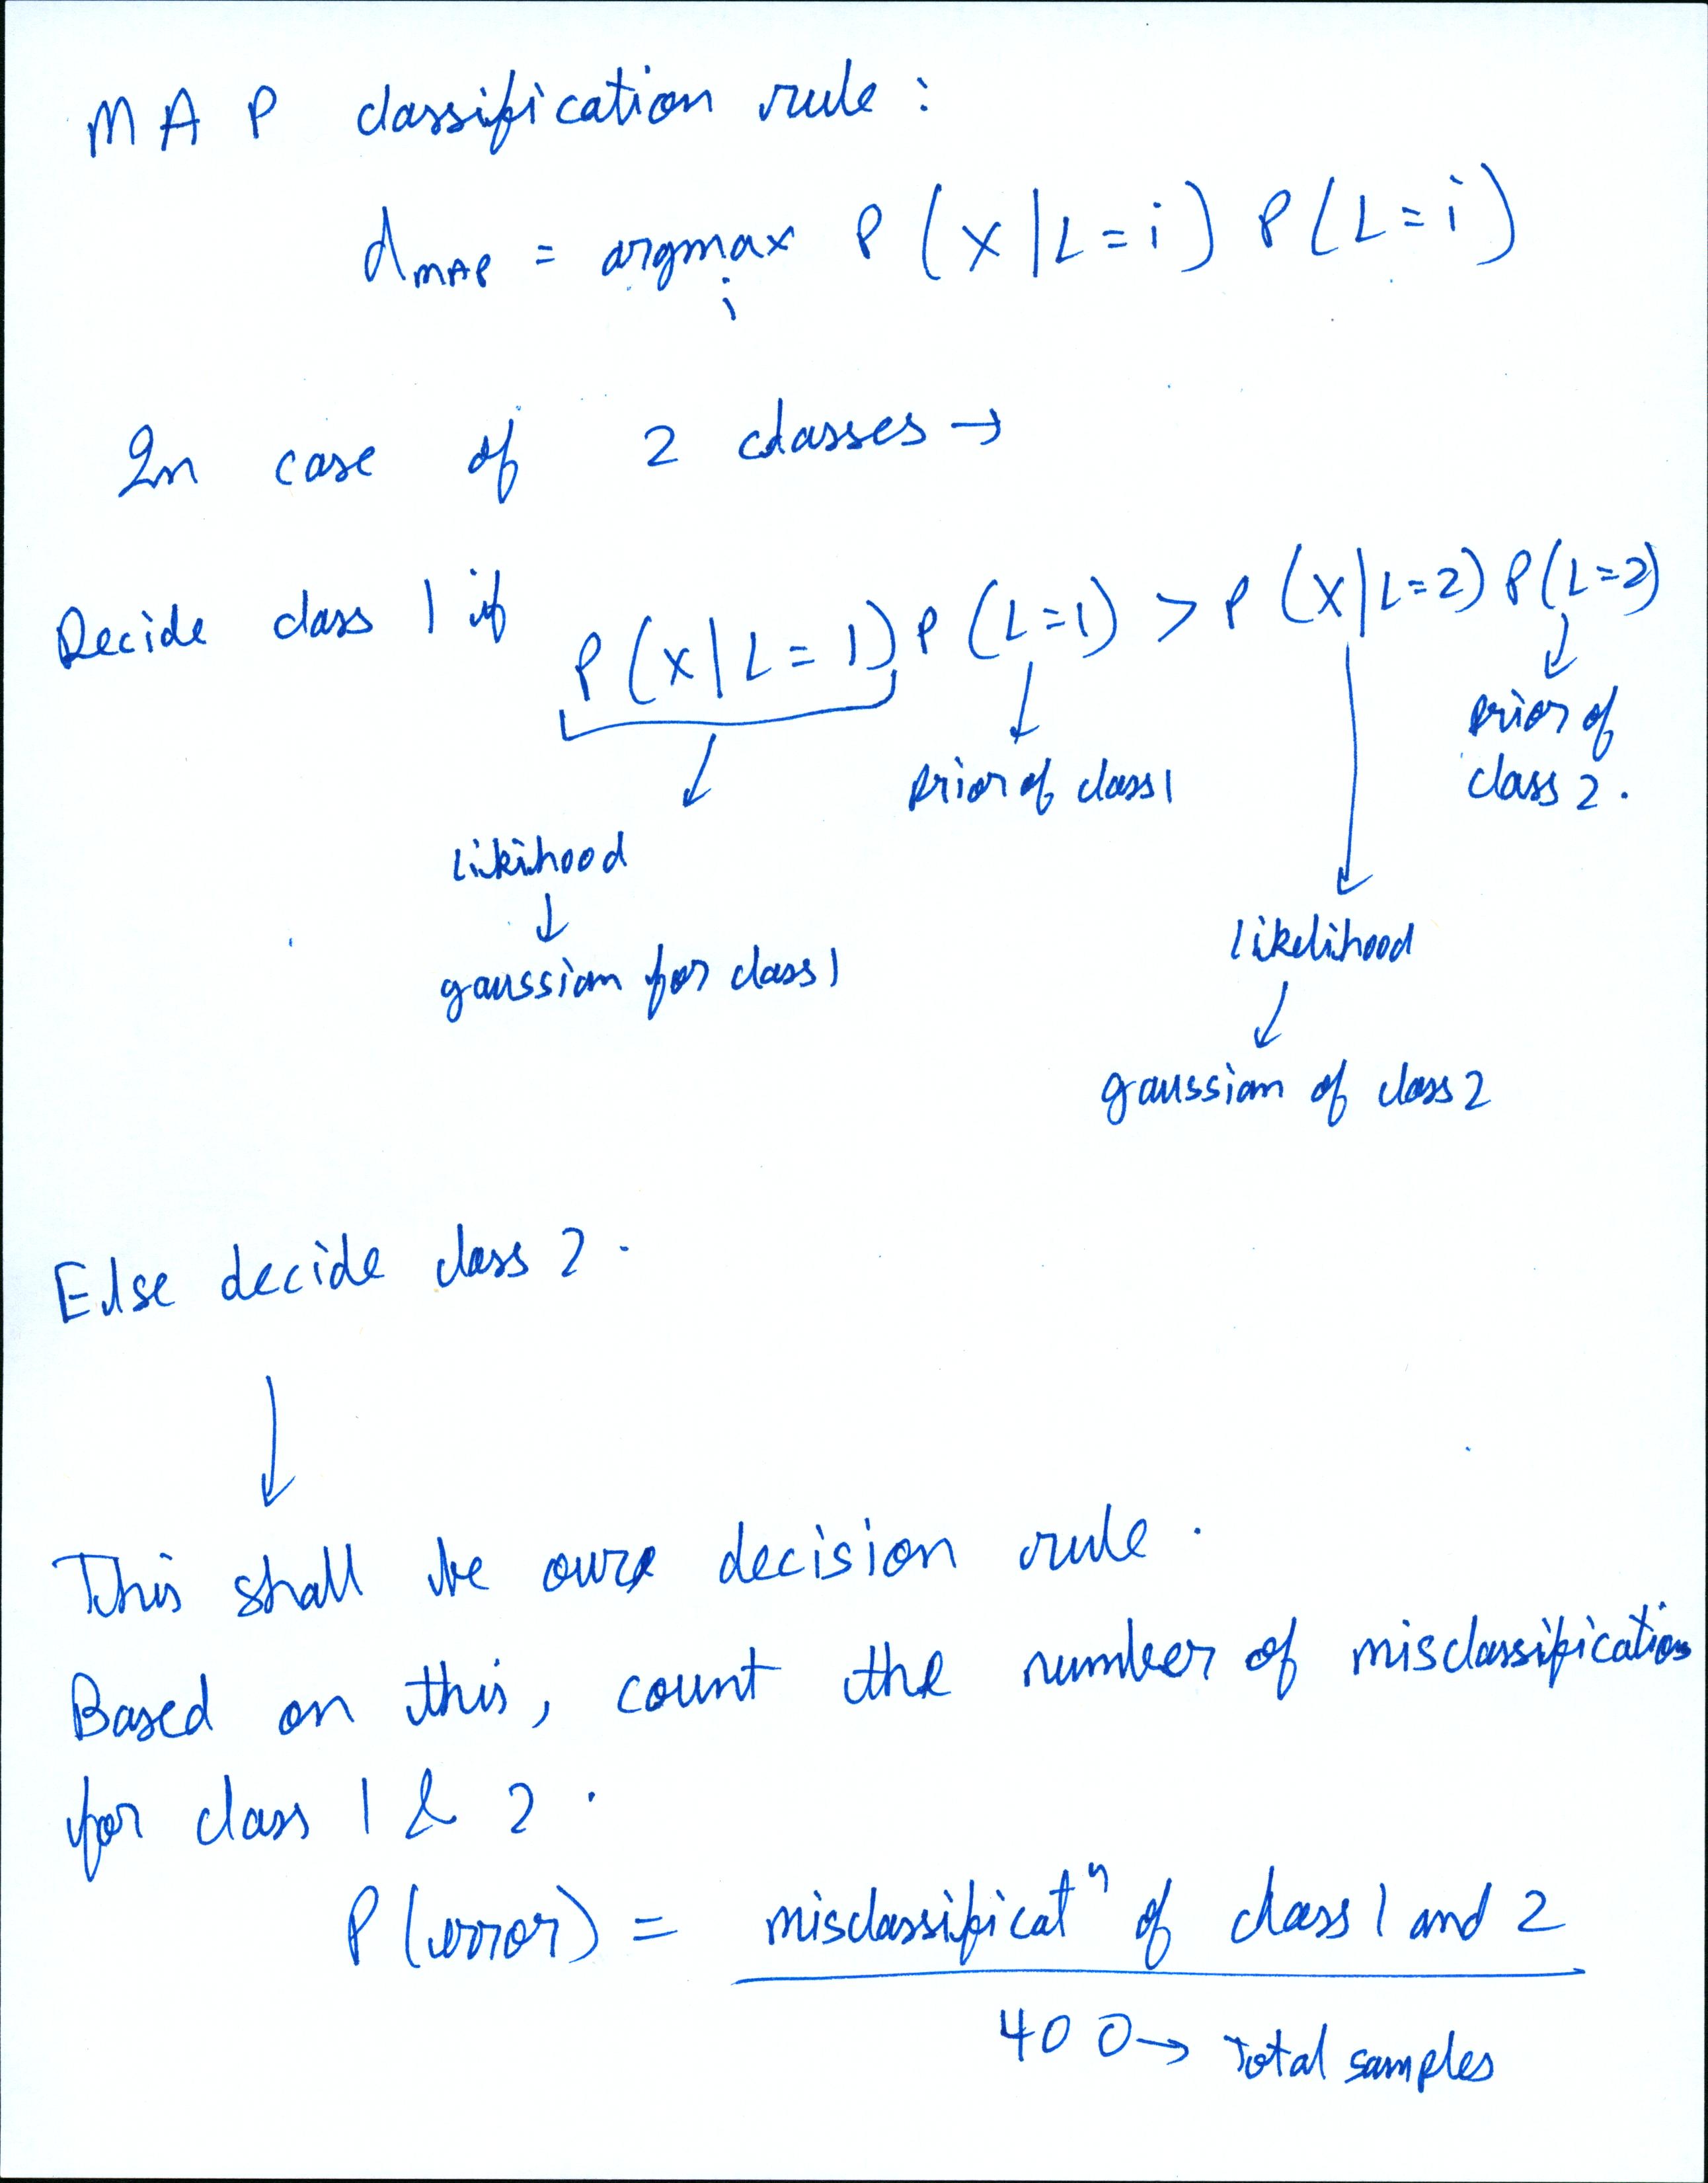 MAP classification rule :
dMAP = argmax P(X|L=i) P(L=i)
i
In case of 2 classes →
Decide class 1 if P(X|L=1) P(L=1) > P(X|L=2) P(L=2)
↓ ↓ ↓ ↓
prior of
class 2.
prior of class 1
likihood
↓
likelihood
gaussian for class 1
↓
gaussian of class 2
Else decide class 2.
↓
This shall be our decision rule.
Based on this, count the number of misclassifications
for class 1 & 2.
P(error) = misclassificatⁿ of class 1 and 2
400 → Total samples